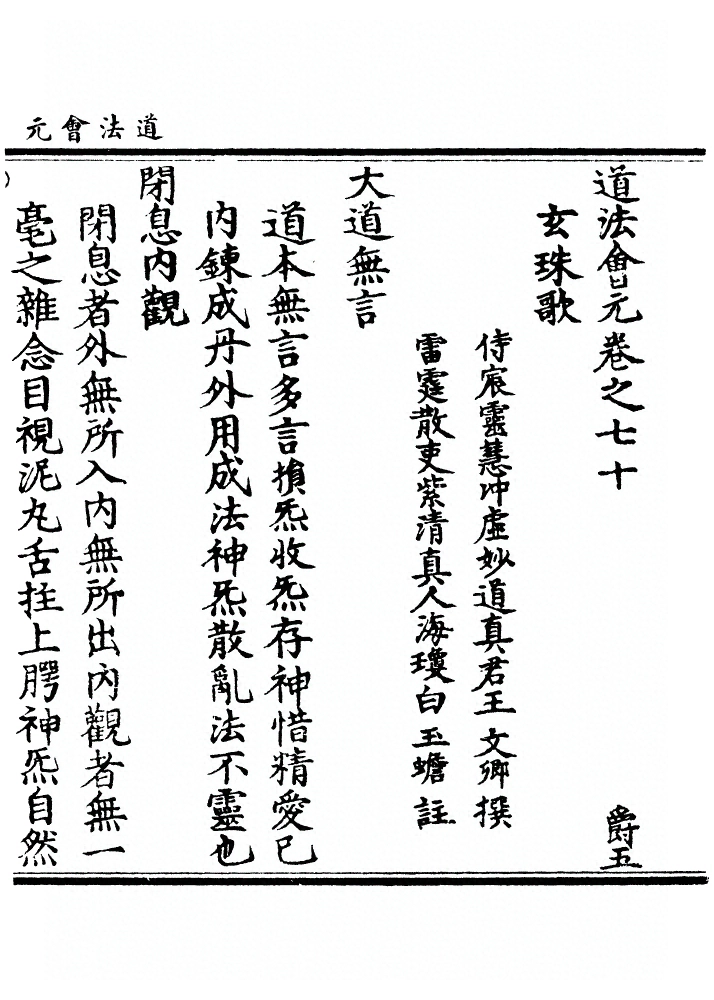 道法會元
道法會元卷之七十
爵五
玄珠歌
侍宸靈慧沖虛妙道真君王文卿撰
雷霆散吏紫清真人海瓊白玉蟾註
大道無言
道本無言多言損炁收炁存神惜精愛已
內鍊成丹外用成法神炁散亂法不靈也
閉息內觀
閉息者外無所入內無所出內觀者無一
毫之雜念目視泥丸舌拄上腭神炁自然